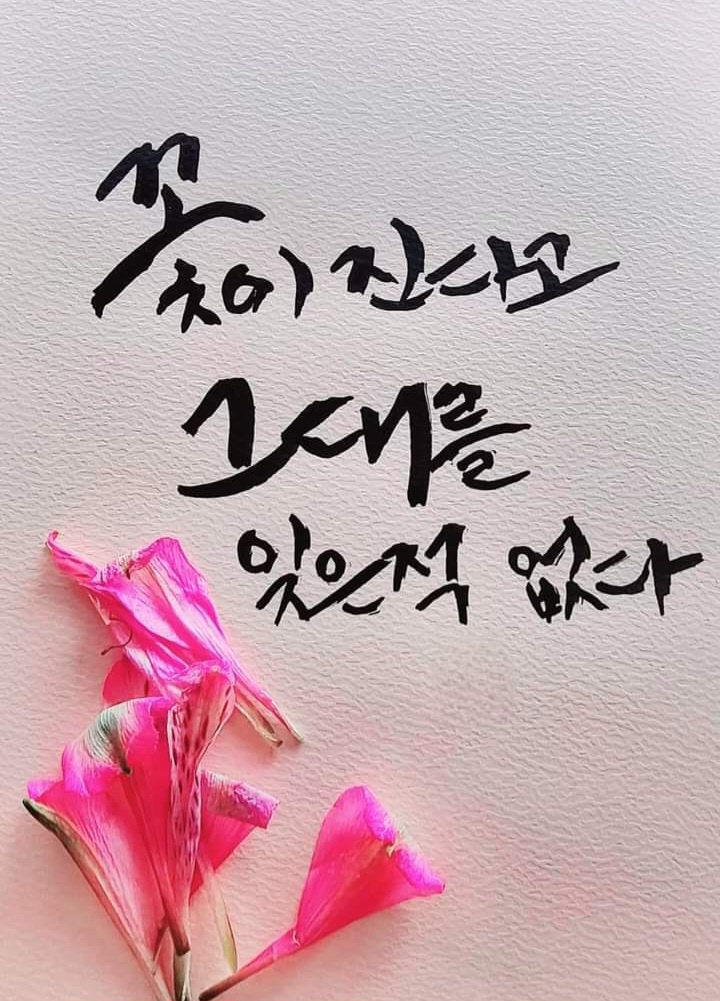 꽃이 진다고
그대를
잊은적 없다